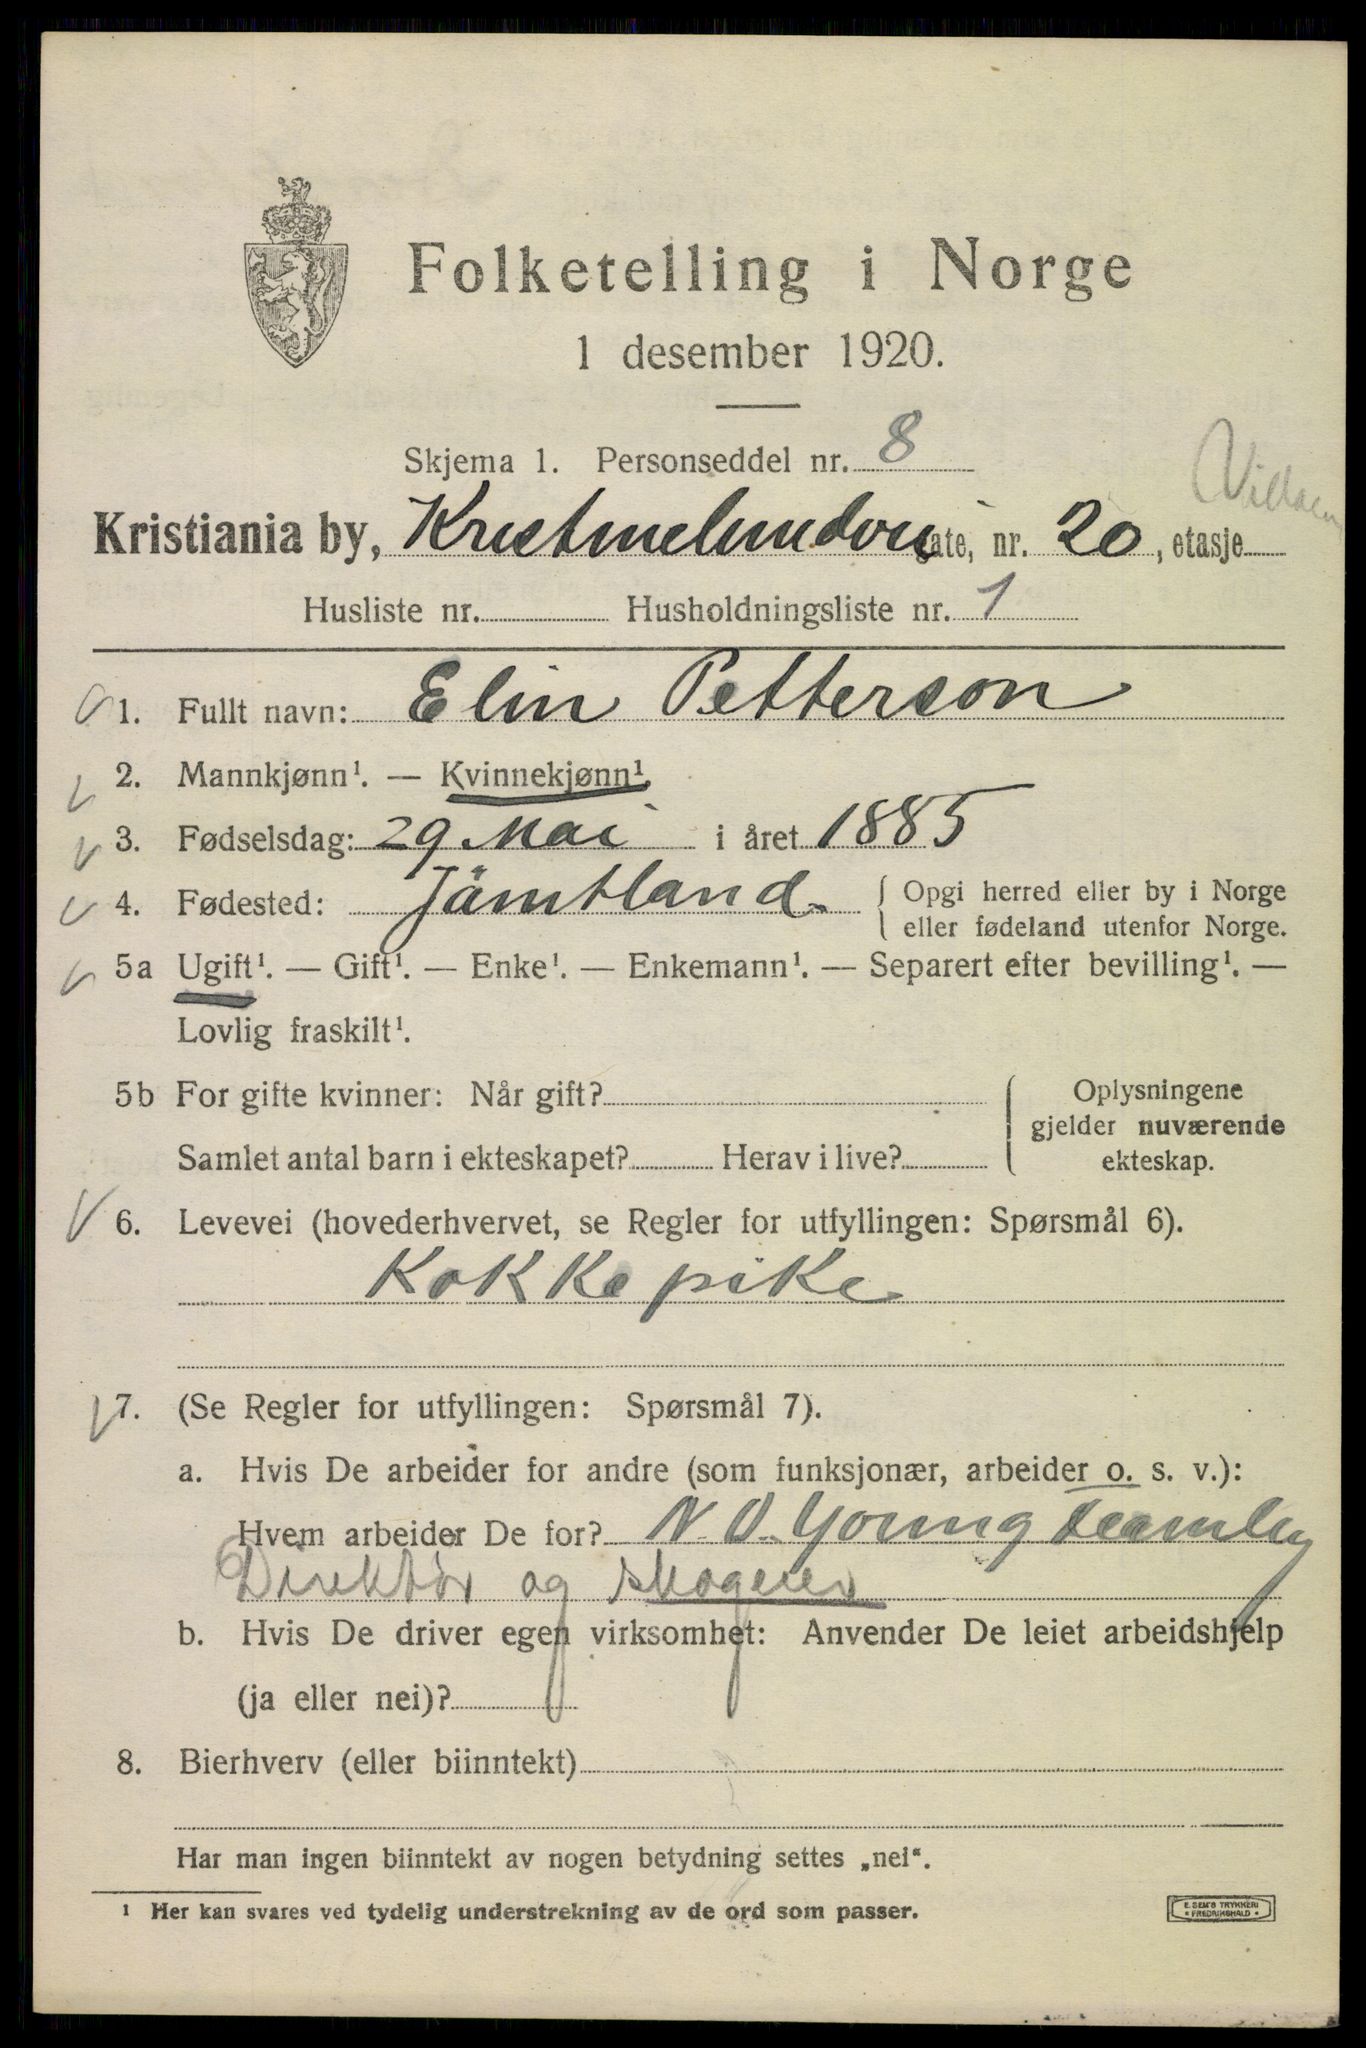 Folketelling i Norge
1 desember 1920.
Skjema 1. Personseddel nr. 8
Kristiania by, Kristinelundvei gate, nr. 20, etasje
Husliste nr. Husholdningsliste nr. 1
1. Fullt navn: Elin Petterson
2. Mannkjønn¹. — Kvinnekjønn¹.
3. Fødselsdag: 29 Mai i året 1885
4. Fødested: Jämtland. Opgi herred eller by i Norge
eller fødeland utenfor Norge.
5a Ugift¹. — Gift¹. — Enke¹. — Enkemann¹. — Separert efter bevilling¹. —
Lovlig fraskilt¹.
5b For gifte kvinner: Når gift? Oplysningene
gjelder nuværende
Samlet antal barn i ekteskapet? Herav i live? ekteskap.
6. Levevei (hovederhvervet, se Regler for utfyllingen: Spørsmål 6).
Kokkepike
7. (Se Regler for utfyllingen: Spørsmål 7).
a. Hvis De arbeider for andre (som funksjonær, arbeider o. s. v.):
Hvem arbeider De for? N. O. Young Fearnley
Direktør og skogeier
b. Hvis De driver egen virksomhet: Anvender De leiet arbeidshjelp
(ja eller nei)?
8. Bierhverv (eller biinntekt)
Har man ingen biinntekt av nogen betydning settes „nei“.
¹ Her kan svares ved tydelig understrekning av de ord som passer.
E. SEM'S TRYKKERI
* FREDRIKSHALD *